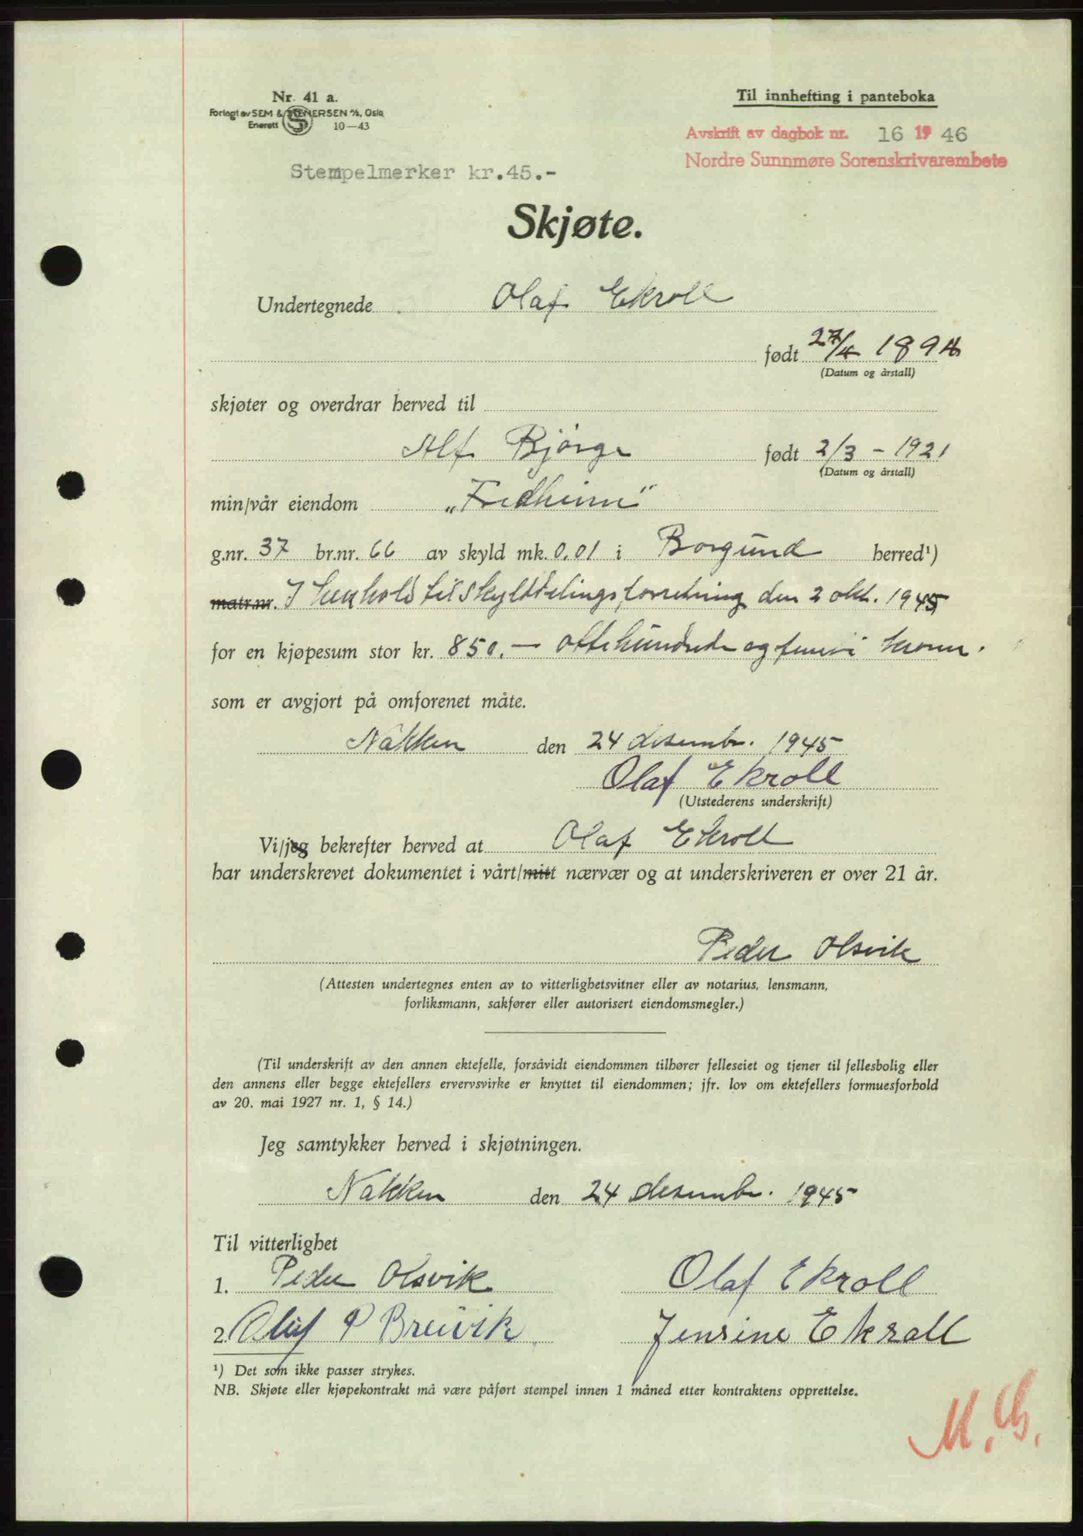 Nr. 41 a.
Forlagt av SEM & STENERSEN A/S, Oslo
Enerett S 10—43
Til innhefting i panteboka
Avskrift av dagbok nr. 16 1946
Nordre Sunnmøre Sorenskrivarembete
Stempelmerker kr.45.-
Skjøte.
Undertegnede Olaf Ekroll
født 27/4 1894
(Datum og årstall)
skjøter og overdrar herved til
Alf Bjørge født 2/3 - 1921
(Datum og årstall)
min/vår eiendom „Fredheim"
g.nr. 37 br.nr. 66 av skyld mk. 0.01 i Borgund herred¹)
matr.nr. I henhold til skylddelingsforretning den 2 okt. 1945
for en kjøpesum stor kr. 850.— ottehundrede og femti kroner.
som er avgjort på omforenet måte.
Nakken den 24 desembr. 1945
Olaf Ekroll
(Utstederens underskrift)
Vi/jeg bekrefter herved at Olaf Ekroll
har underskrevet dokumentet i vårt/mitt nærvær og at underskriveren er over 21 år.
Peder Olsvik
(Attesten undertegnes enten av to vitterlighetsvitner eller av notarius, lensmann,
forliksmann, sakfører eller autorisert eiendomsmegler.)
(Til underskrift av den annen ektefelle, forsåvidt eiendommen tilhører felleseiet og tjener til fellesbolig eller
den annens eller begge ektefellers ervervsvirke er knyttet til eiendommen; jfr. lov om ektefellers formuesforhold
av 20. mai 1927 nr. 1, § 14.)
Jeg samtykker herved i skjøtningen.
Nakken den 24 desembr. 1945
Til vitterlighet
1. Peder Olsvik Olaf Ekroll
2. Oluf P Breivik Jensine Ekroll
¹) Det som ikke passer strykes.
NB. Skjøte eller kjøpekontrakt må være påført stempel innen 1 måned etter kontraktens opprettelse.